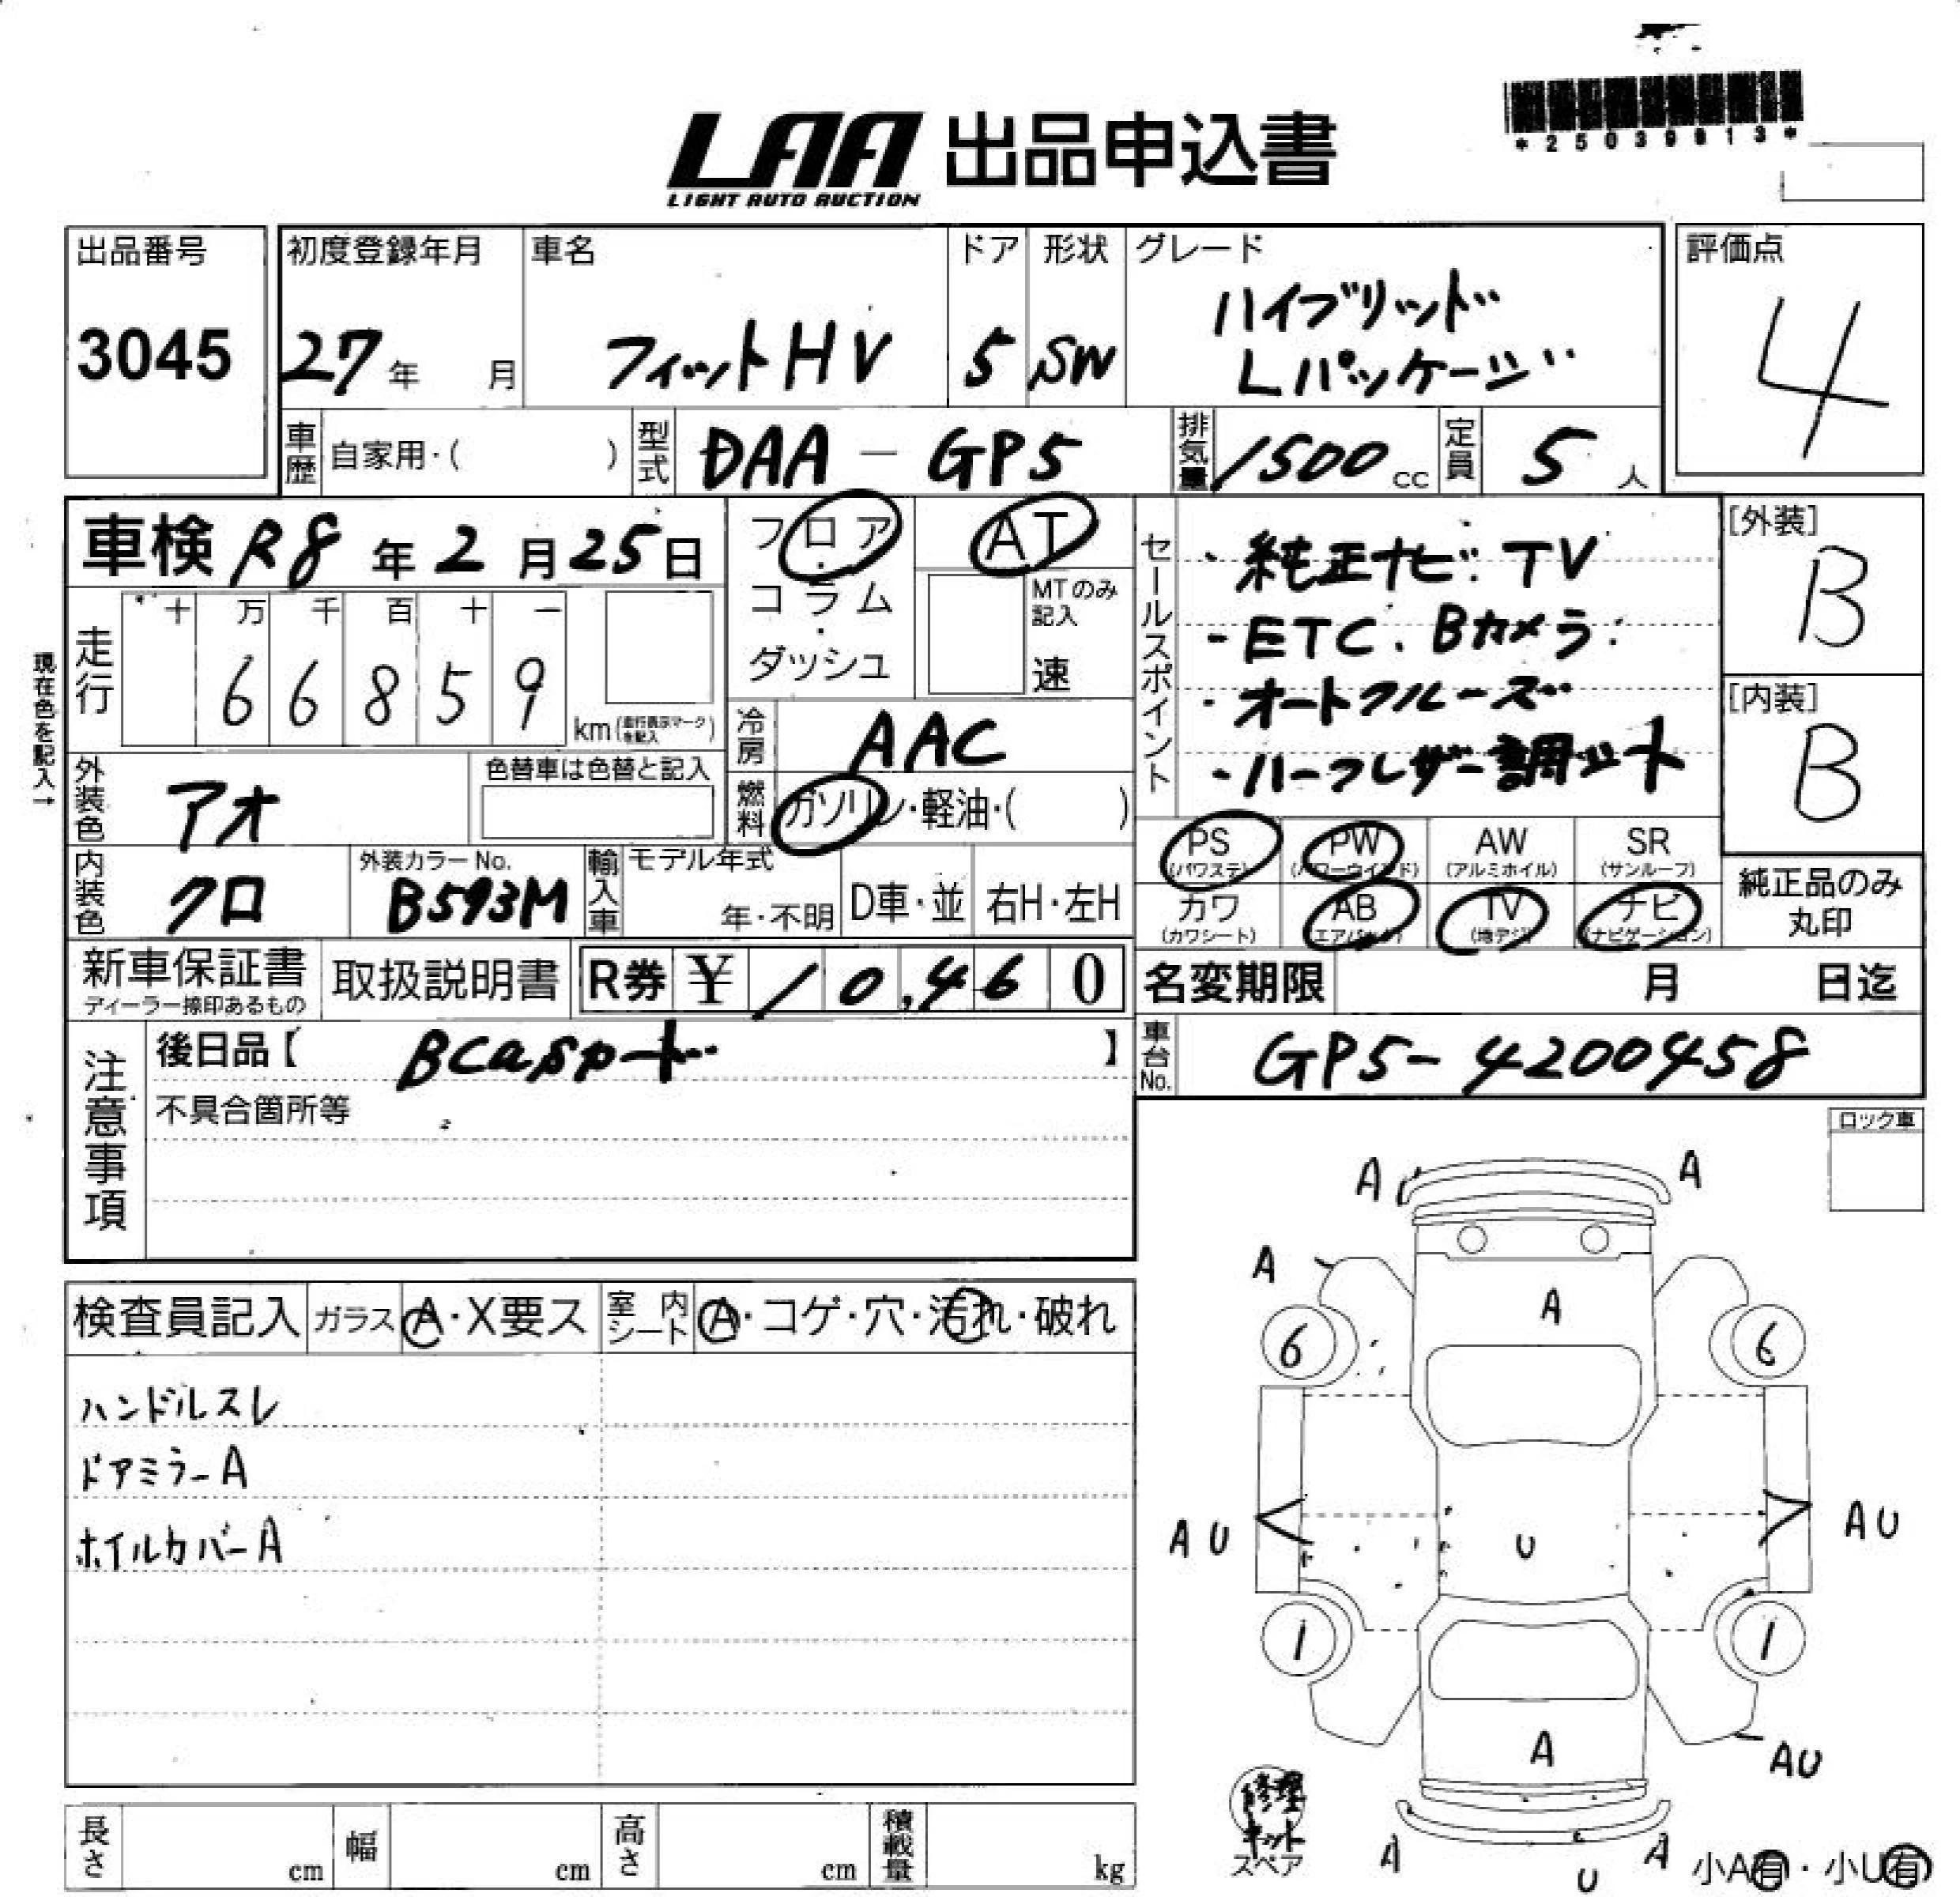 *25039813*
LAA 出品申込書
LIGHT AUTO AUCTION
出品番号
3045
初度登録年月
27年 月
車名
フィットHV
ドア
5
形状
SW
グレード
ハイブリッド
Lパッケージ
評価点
4
車歴
自家用・( )
型式
DAA-GP5
排気量
1500cc
定員
5人
車検 R8年2月25日
走行
十 万 千 百 十 一
6 6 8 5 9
km(走行表示マークを記入)
現在色を記入→
外装色
アオ
色替車は色替と記入
内装色
クロ
外装カラーNo.
B593M
フロア
・
コラム
・
ダッシュ
AT
MTのみ記入
速
冷房
AAC
燃料
ガソリン・軽油・( )
輸入車
モデル年式
年・不明
D車・並
右H・左H
セールスポイント
・純正ナビ.TV
・ETC.Bカメラ.
・オートクルーズ
・ハーフレザー調シート
[外装]
B
[内装]
B
PS
(パワステ)
PW
(パワーウインド)
AW
(アルミホイル)
SR
(サンルーフ)
カワ
(カワシート)
AB
(エアバック)
TV
(地デジ)
ナビ
(ナビゲーション)
純正品のみ
丸印
新車保証書
ディーラー捺印あるもの
取扱説明書
R券 ¥10,460
名変期限 月 日迄
車台No.
GP5-4200458
注意事項
後日品【 BCasカード 】
不具合箇所等
ロック車
検査員記入
ガラス A・X要ス
室内シート A・コゲ・穴・汚れ・破れ
ハンドルスレ
ドアミラーA
ホイルカバーA
A A
A
A
6 6
AU U AU
1 1
A
AU
A U A
修理
キット
スペア
小A有・小U有
長さ cm
幅 cm
高さ cm
積載量 kg